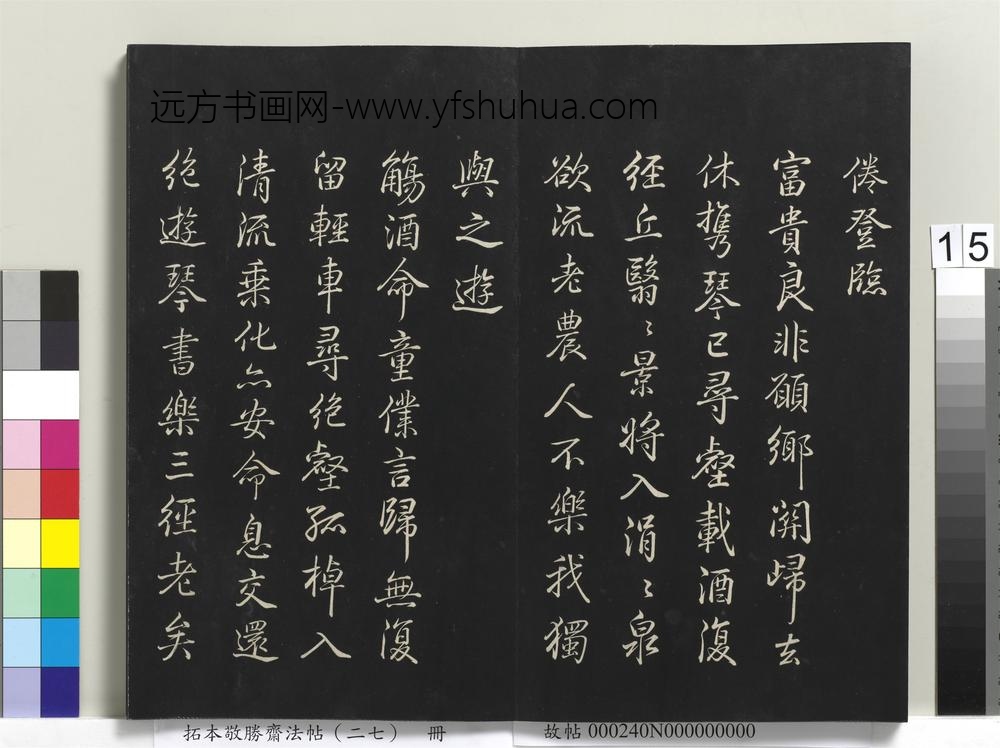 远方书画网-www.yfshuhua.com
倦登臨
富貴良非願鄉關歸去
休携琴已尋壑載酒復
徑丘翳〻景將入涓〻泉
欲流老農人不樂我獨
與之遊
觴酒命童僕言歸無復
留輕車尋絶壑孤棹入
清流乗化亦安命息交還
絶遊琴書樂三徑老矣
15
拓本敬勝齋法帖（二七） 冊
故帖 000240N000000000